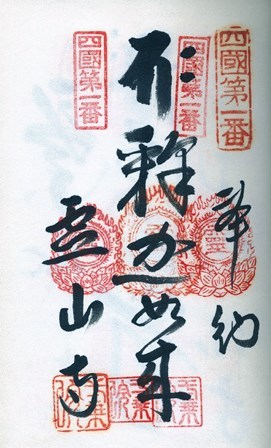 四國第一番
奉納
四國第一番
釋迦如来
四國第一番
霊山寺